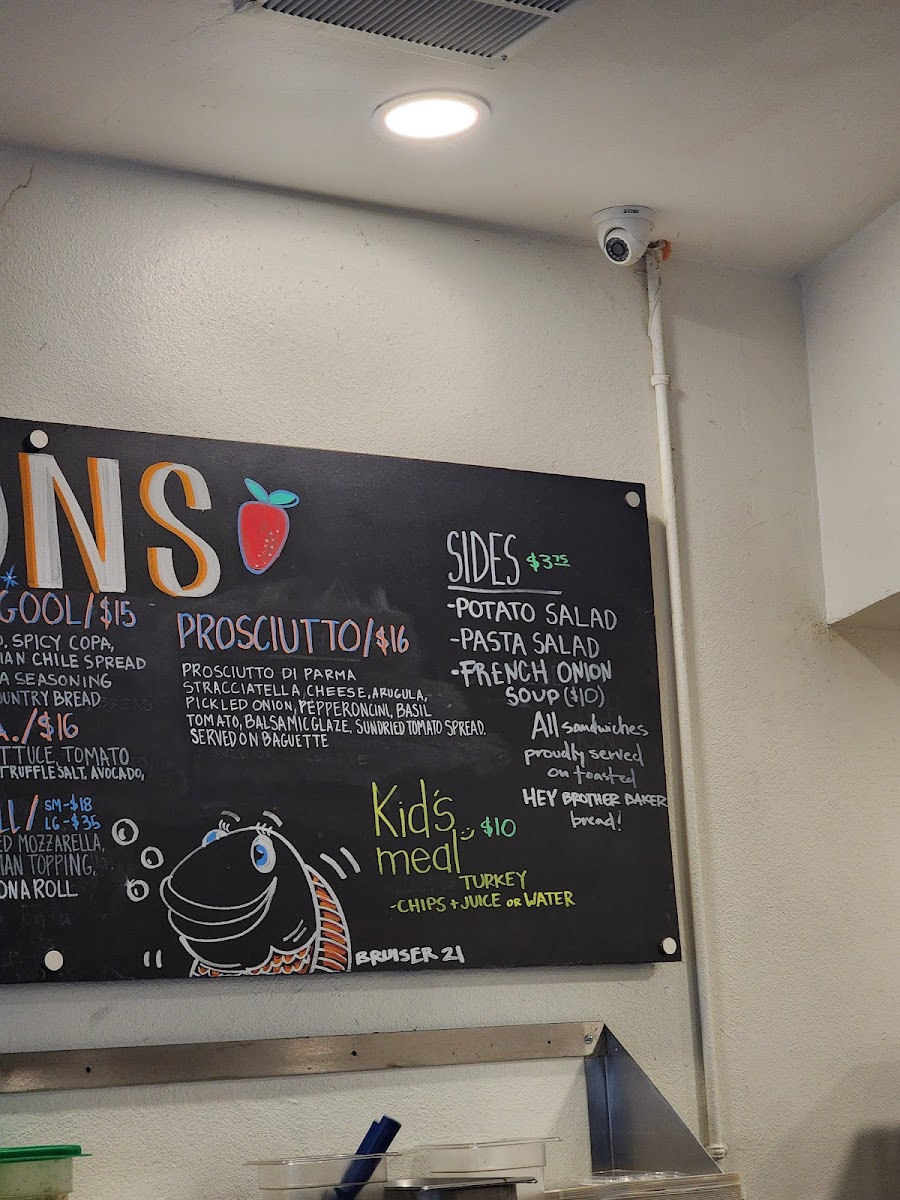 NS
GOOL/$15
SPICY COPA,
IAN CHILE SPREAD
A SEASONING
OUNTRY BREAD
A./$16
ETTUCE, TOMATO
TRUFFLE SALT, AVOCADO,
LL/ SM-$18
LG-$35
ED MOZZARELLA,
IAN TOPPING,
ON A ROLL
PROSCIUTTO/$16
PROSCIUTTO DI PARMA
STRACCIATELLA CHEESE, ARUGULA,
PICKLED ONION, PEPPERONCINI, BASIL
TOMATO, BALSAMIC GLAZE, SUNDRIED TOMATO SPREAD.
SERVED ON BAGUETTE
SIDES $3.75
-POTATO SALAD
-PASTA SALAD
-FRENCH ONION
SOUP ($10)
All sandwiches
proudly served
on toasted
HEY BROTHER BAKER
bread!
Kid's
meal $10
TURKEY
-CHIPS + JUICE OR WATER
BRUISER 21